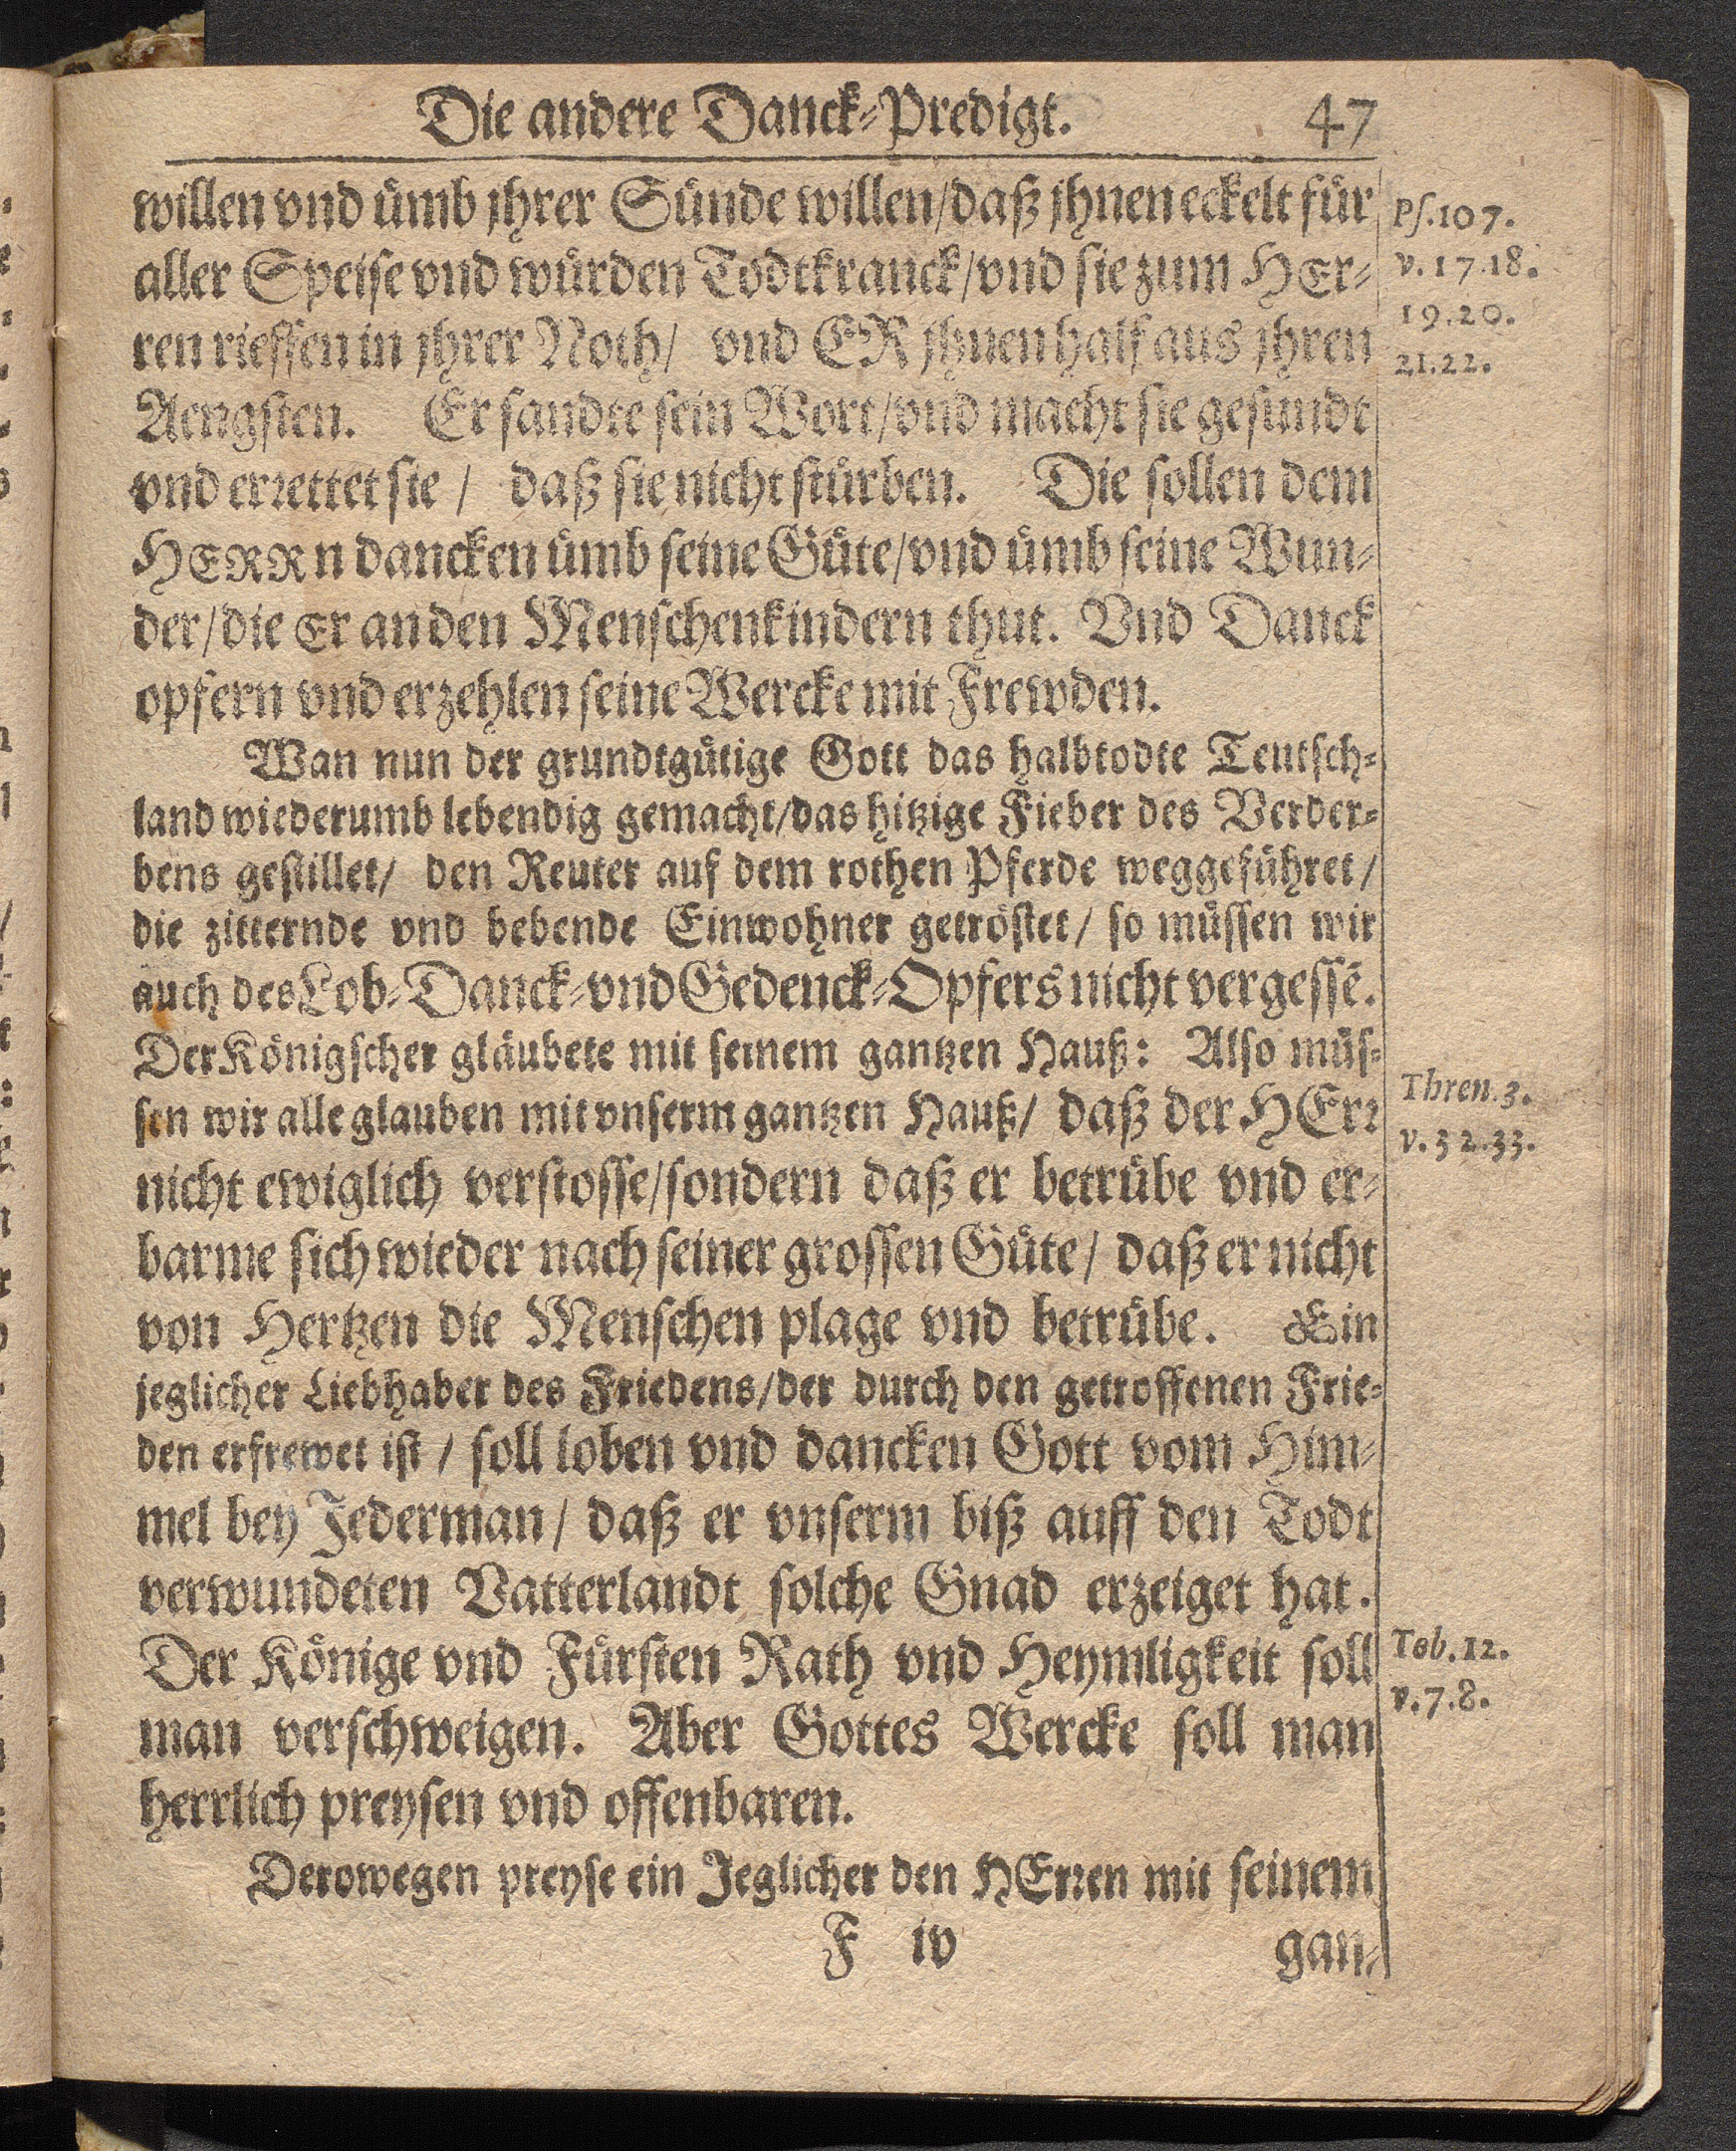 Die andere Danck-Predigt. 47
willen vnd ümb jhrer Sünde willen/daß jhnen eckelt für
aller Speise vnd würden Todtkranck/vnd sie zum HEr-
ren rieffen in jhrer Noth/ vnd ER jhnen half aus jhren
Aengsten. Er sandte sein Wort/vnd macht sie gesundt
vnd errettet sie / daß sie nicht stürben. Die sollen dem
HERRn dancken ümb seine Güte/vnd ümb seine Wun-
der/die Er an den Menschenkindern thut. Vnd Danck
opfern vnd erzehlen seine Wercke mit Frewden.
Ps. 107.
v. 17.18.
19.20.
21.22.
Wan nun der grundtgütige Gott das halbtodte Teutsch-
land wiederumb lebendig gemacht/das hitzige Fieber des Verder-
bens gestillet/ den Reuter auf dem rothen Pferde weggeführet/
die zitternde vnd bebende Einwohner getröstet/ so müssen wir
auch des Lob-Danck-vnd Gedenck-Opfers nicht vergessē.
Der Königscher gläubete mit seinem gantzen Hauß: Also müs-
sen wir alle glauben mit vnserm gantzen Hauß/ daß der HErr
nicht ewiglich verstosse/sondern daß er betrübe vnd er-
barme sich wieder nach seiner grossen Güte/ daß er nicht
von Hertzen die Menschen plage vnd betrübe. Ein
jeglicher Liebhaber des Friedens/der durch den getroffenen Frie-
den erfrewet ist / soll loben vnd dancken Gott vom Him-
mel bey Jederman/ daß er vnserm biß auff den Todt
verwundeten Vatterlandt solche Gnad erzeiget hat.
Der Könige vnd Fürsten Rath vnd Heymligkeit soll
man verschweigen. Aber Gottes Wercke soll man
herrlich preysen vnd offenbaren.
Thren. 3.
v. 32.33.
Tob. 12.
v. 7.8.
Derowegen preyse ein Jeglicher den HErren mit seinem
F iv gan-